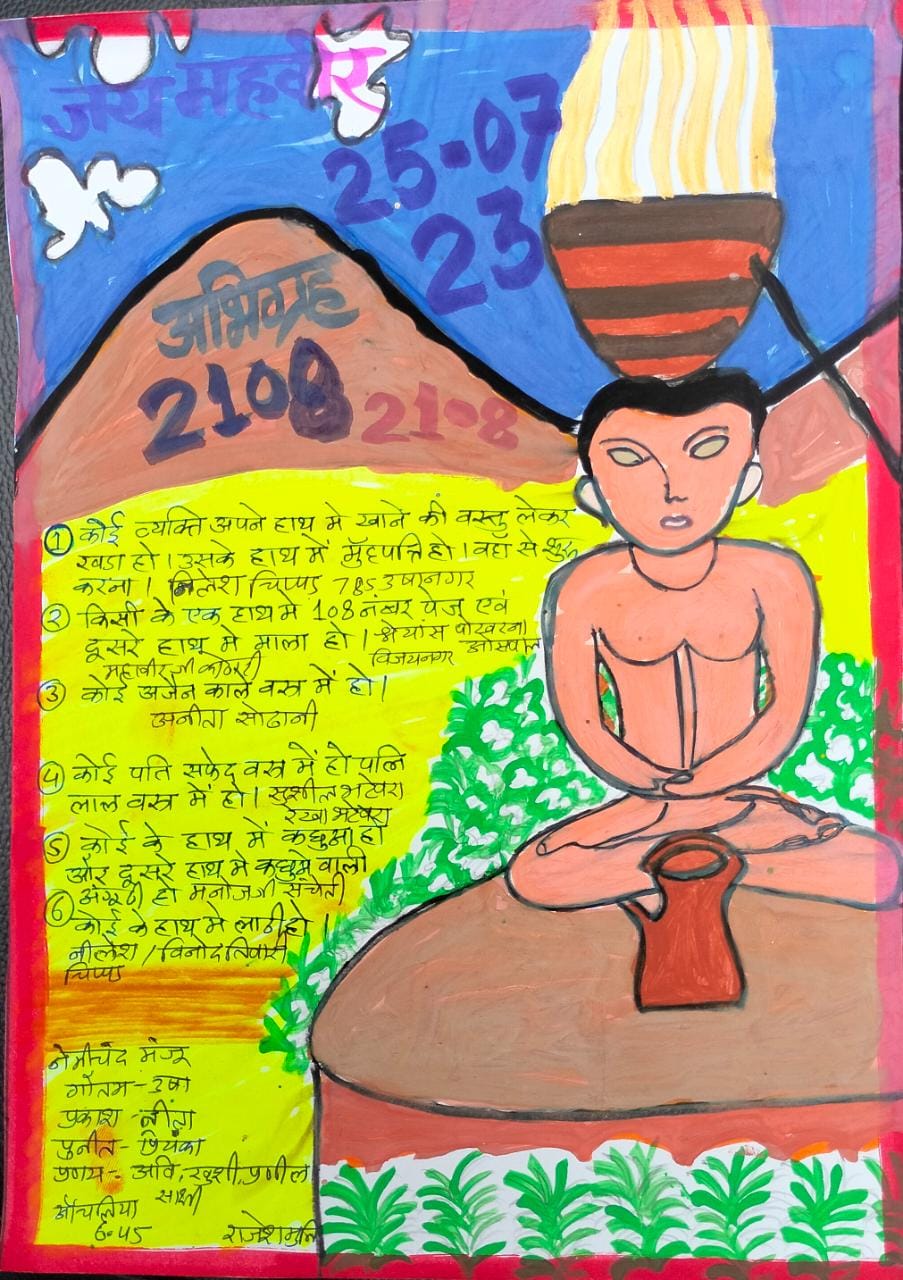 जय महवीर
25-07
23
अभिग्रह
2108 21-8
① कोई व्यक्ति अपने हाथ मे खाने की वस्तु लेकर
खडा हो। उसके हाथ में मुँहपत्ति हो। वहा से शुरू
करना। निलेश चिप्पड 785 उषानगर
② किसी के एक हाथ में 108 नंबर पेज एवं
दूसरे हाथ मे माला हो। श्रेयांस पोखरना
महावीर जी कोठारी विजयनगर ओसवाल
③ कोई अजैन काले वस्त्र में हो।
अनीता सोढानी
④ कोई पति सफेद वस्त्र में हो पत्नि
लाल वस्त्र में हो। सुशील भटेवरा
रेखा भटेवरा
⑤ कोई के हाथ में कछुआ हो
और दूसरे हाथ मे कछुए वाली
अंगूठी हो मनोजजी संचेती
⑥ कोई के हाथ मे लाठी हो।
नीलेश / विनोद तिवारी
चिप्पड
नेमीचंद मंजू
गौतम - उषा
प्रकाश - नीता
पुनीत - प्रियंका
प्रणय - अवि, खुशी, प्रनील
साक्षी
औचलिया
6.45 राजेशमुनि